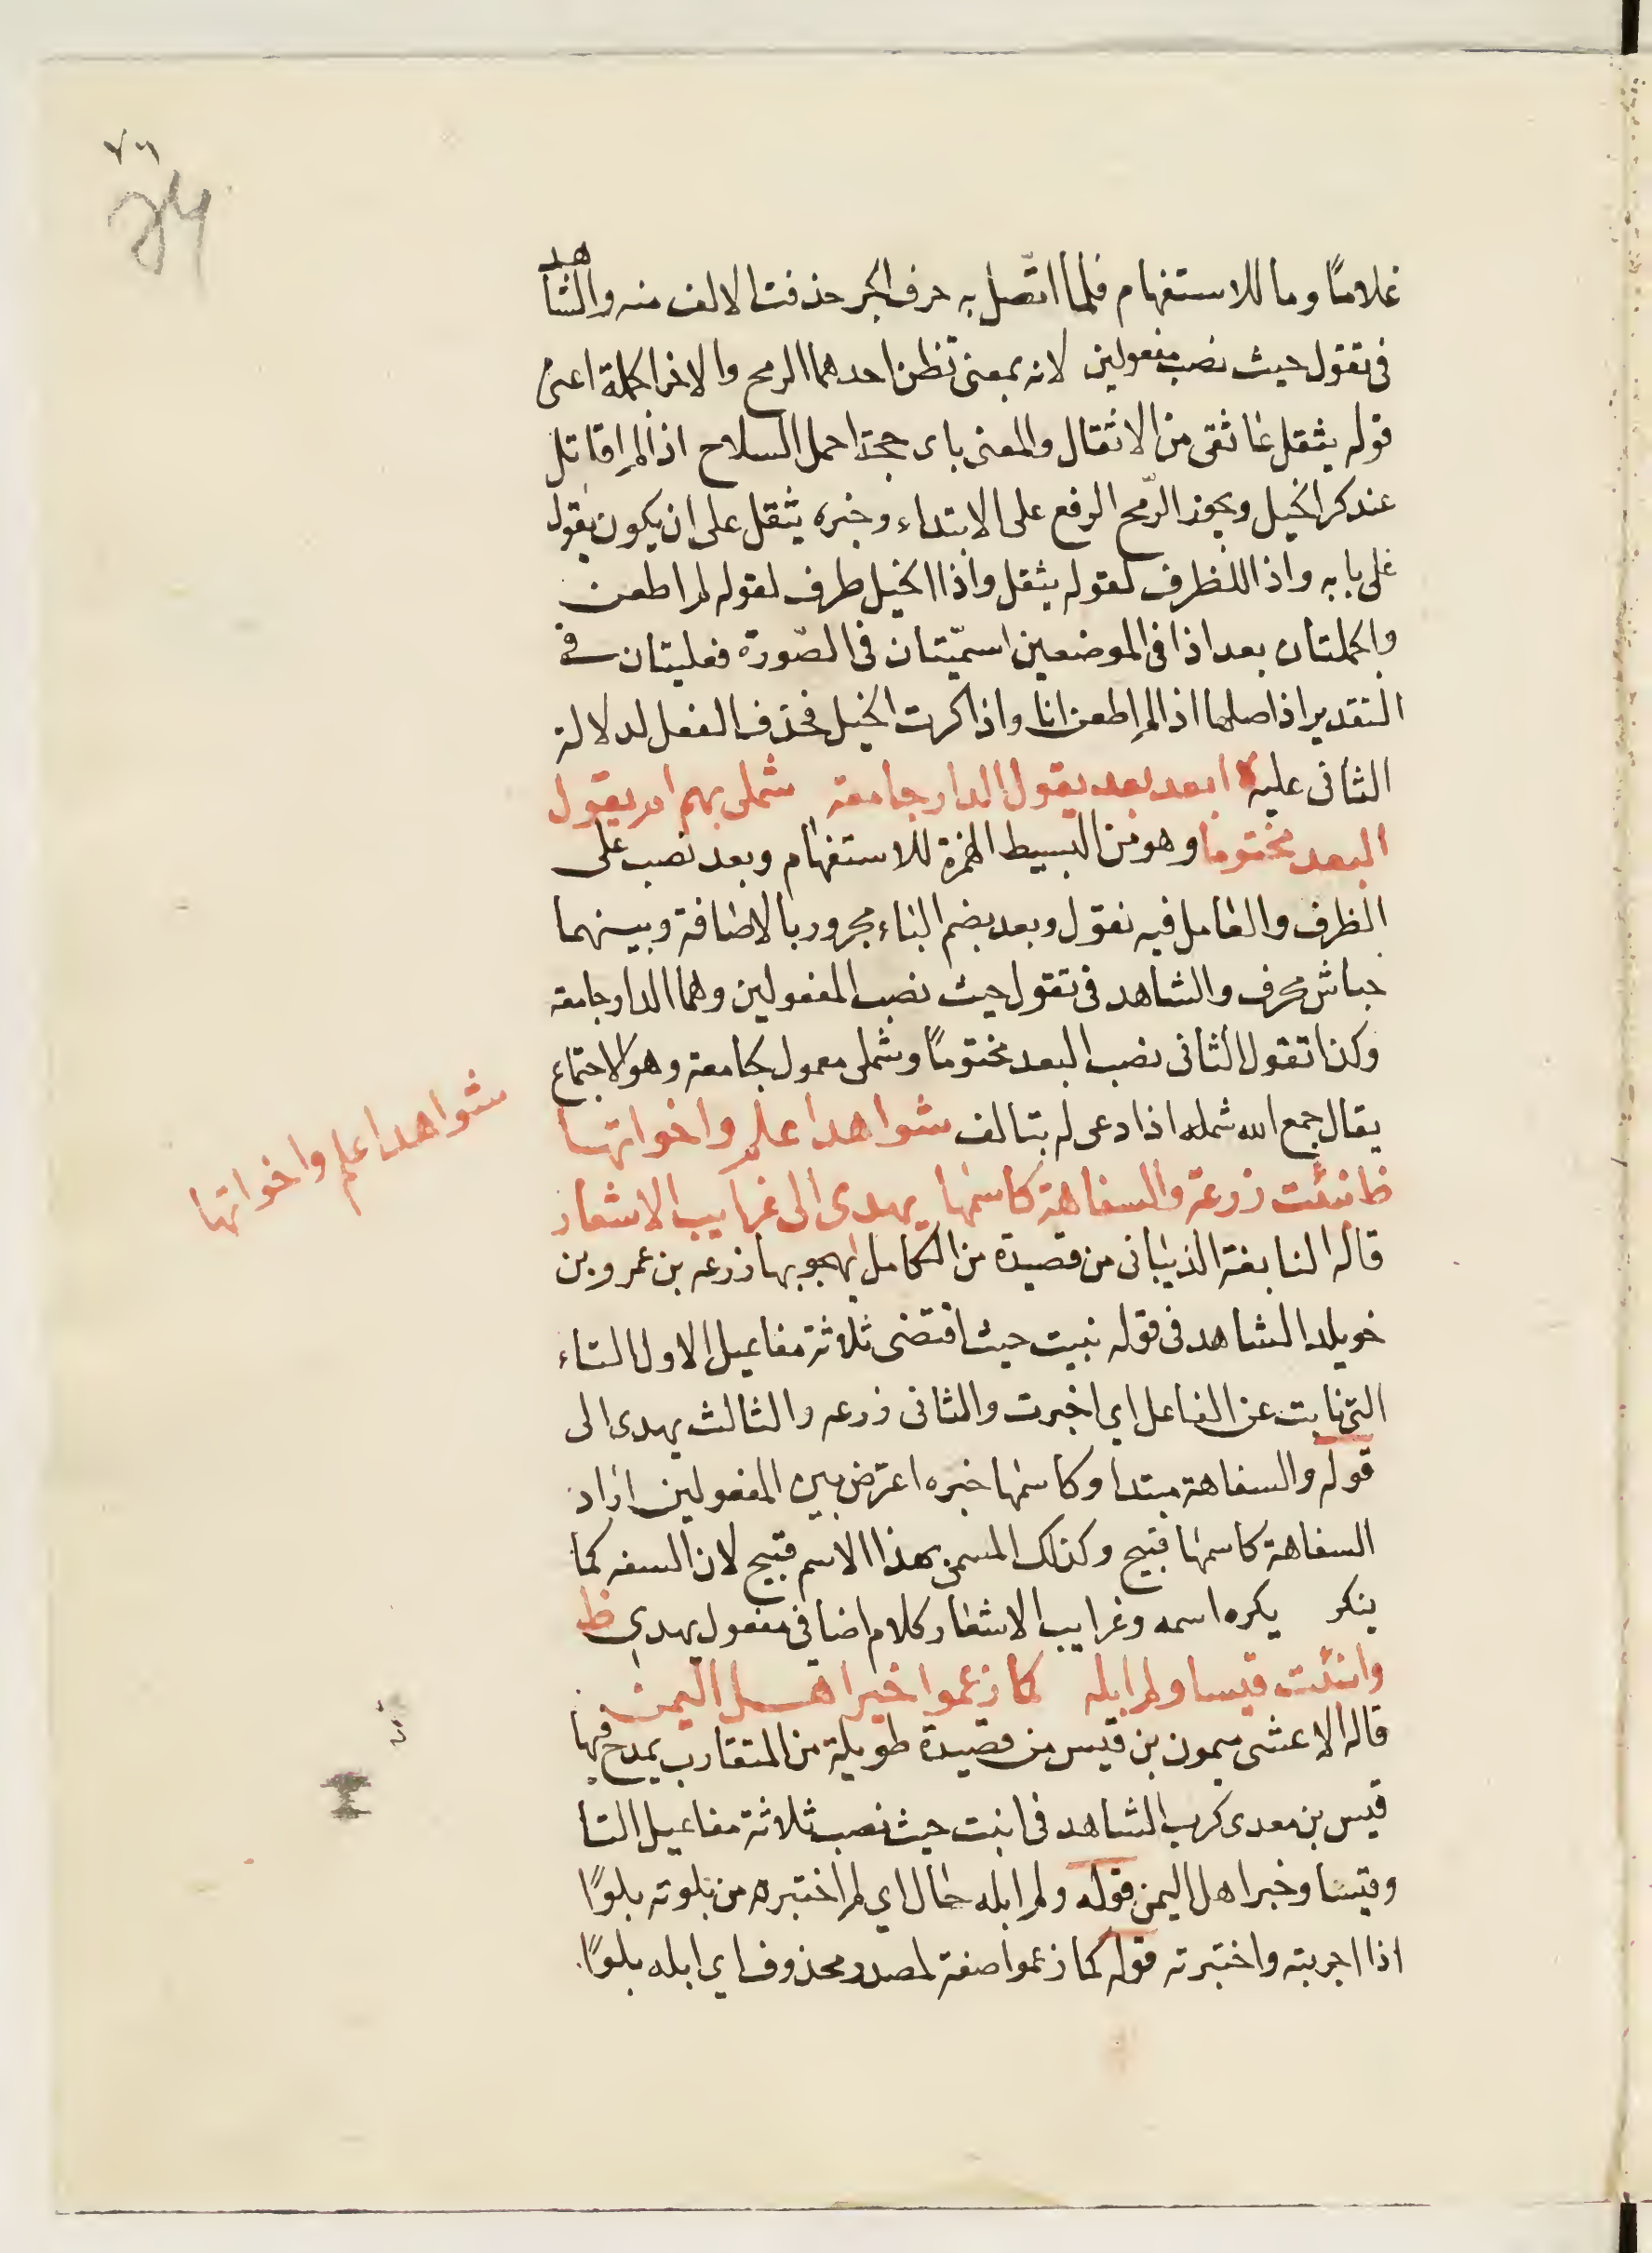 ٧٦
علامًا وما للاستفهام فلما اتّصل به حرف الجر حذفت الالف منه والشاهد
في تقول حيث نصب مفعولين لانه بمعنى تظن احدهما الرمح والاخر الجملة اعنى
قوله يثقل عاتقى من الاثقال والمعنى باى حجة احمل السلاح اذا لم اقاتل
عند كر الخيل ويجوز الرّمح الرفع على الابتداء وخبره يثقل على ان يكون يقول
على بابه واذا للظرف لقوله يثقل واذا الخيل ظرف لقوله لم اطعن
والجملتان بعد اذا فى الموضعين اسميّتان فى الصّورة فعليتان فى
التقدير اذ اصلهما اذا لم اطعن انا واذا كرت الخيل فحذف الفعل لدلالة
الثانى عليه ابعد بعد يقول الدار جامعة شملى بهم ام يقول
البعد مختوما وهو من البسيط الهمزة للاستفهام وبعد نصب على
الظرف والعامل فيه تقول وبعد بضم الباء مجرور بالاضافة وبينهما
جناس محرف والشاهد فى تقول حيث نصب المفعولين وهما الدار جامعة
وكذا تقول الثانى نصب البعد مختومًا وشملى معمول لجامعة وهو الاجتماع
يقال جمع الله شمله اذا دعى له بتالف شواهد اعلم واخواتها
شواهد اعلم واخواتها
ظ نبئت زرعة والسفاهة كاسمها يهدى الى غرايب الاشعار
قاله النابغة الذبيانى من قصيدة من الكامل يهجو بها زرعه بن عمرو بن
خويلد الشاهد فى قوله نبيت حيث اقتضى ثلاثة مفاعيل الاول التاء
التى نابت عن الفاعل اي اخبرت والثانى زرعه والثالث يهدى الى
قوله والسفاهة مبتدا وكاسمها خبره اعترض بين المفعولين اراد
السفاهة كاسمها قبيح وكذلك المسمى بهذا الاسم قبيح لان السفه كما
ينكر يكره اسمه وغرايب الاشعار كلام اضافى مفعول يهدى ظ
وانبئت قيسا ولم ابله كما زعموا خير اهل اليمن
قاله الاعشى ميمون بن قيس من قصيدة طويلة من المتقارب يمدح فيها
قيس بن معدى كرب الشاهد فى انبت حيث نصب ثلاثة مفاعيل التا
وقيسا وخير اهل اليمن قوله ولم ابله حال اي لم اختبره من بلوته بلوًا
اذا اجربته واختبرته قوله كما زعموا صفة لمصدر محذوف اي ابله بلوًا